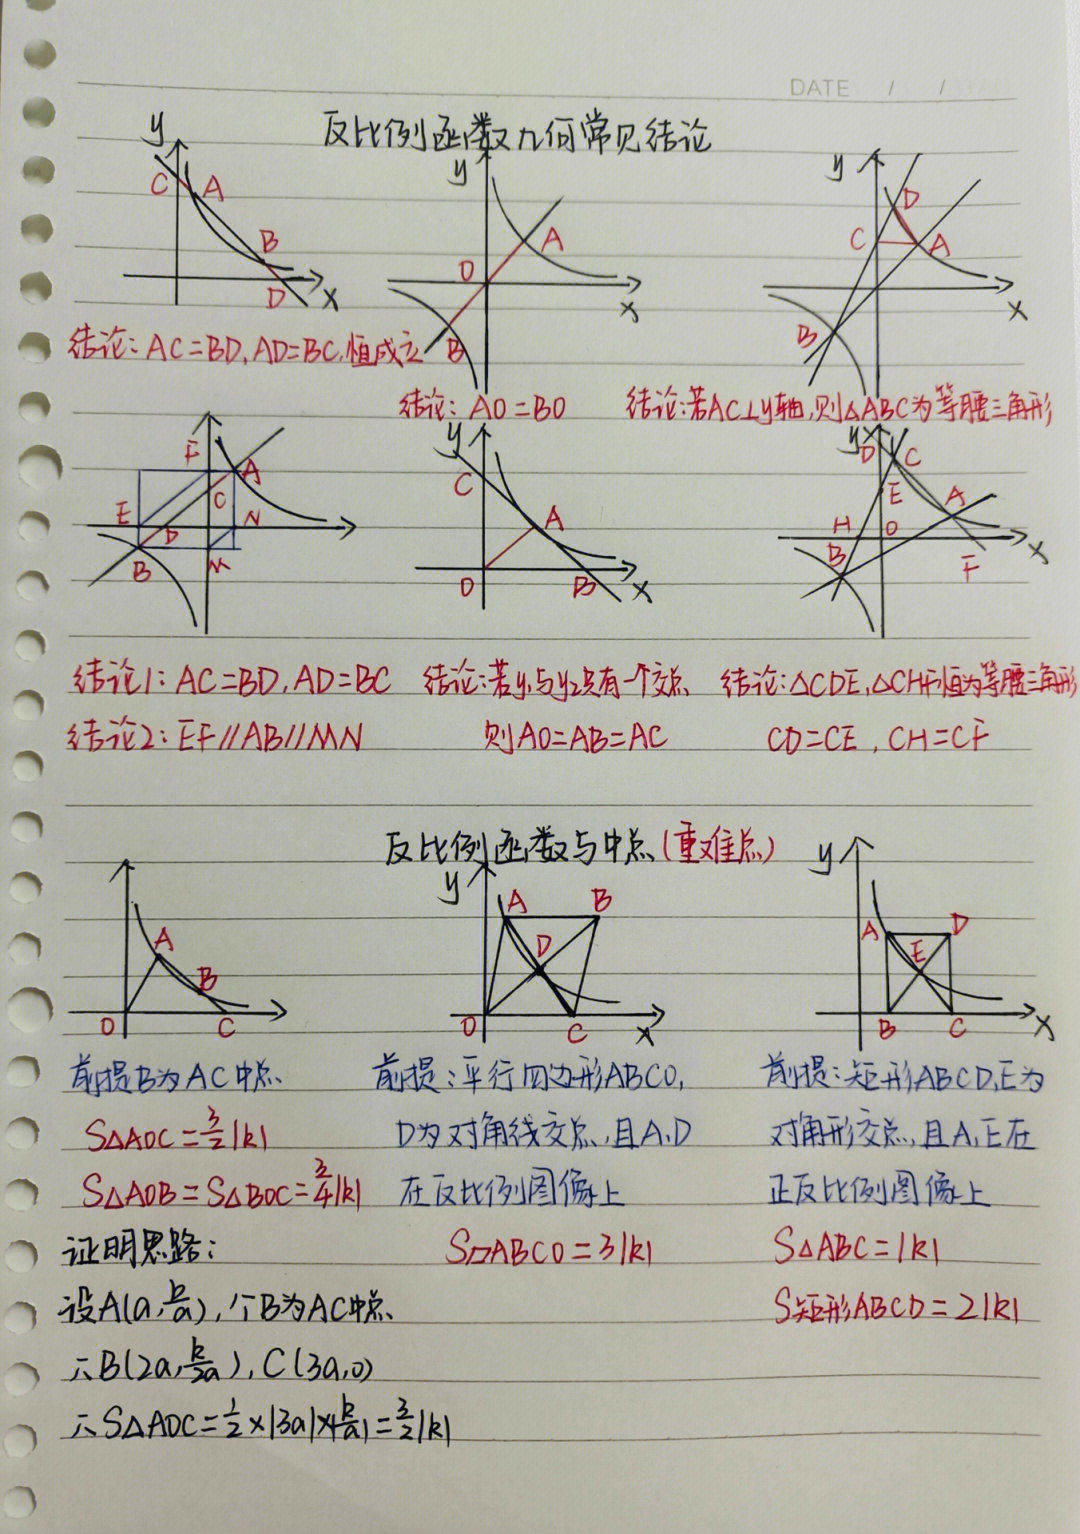 DATE / /
反比例函数几何常见结论
y C A B D x
y O A B x
y D C A B x
结论：AC=BD,AD=BC,恒成立
结论：AO=BO
结论:若AC⊥y轴,则△ABC为等腰三角形
F A C E D N B M
y C A O B x
y D C E A H O B F x
结论1：AC=BD,AD=BC
结论2：EF//AB//MN
结论:若y₁与y₂只有一个交点
则AO=AB=AC
结论:△CDE,△CHF恒为等腰三角形
CD=CE,CH=CF
反比例函数与中点(重难点)
A B O C
y A B D O C x
y A D E B C x
前提B为AC中点
S△AOC=3/2|k|
S△AOB=S△BOC=3/4|k|
证明思路：
设A(a,k/a),个B为AC中点
∴B(2a,k/2a),C(3a,0)
∴S△AOC=1/2×|3a|×|k/a|=3/2|k|
前提：平行四边形ABCO,
D为对角线交点,且A,D
在反比例图像上
S▱ABCO=3|k|
前提：矩形ABCD,E为
对角形交点,且A,E在
正反比例图像上
S△ABC=|k|
S矩形ABCD=2|k|